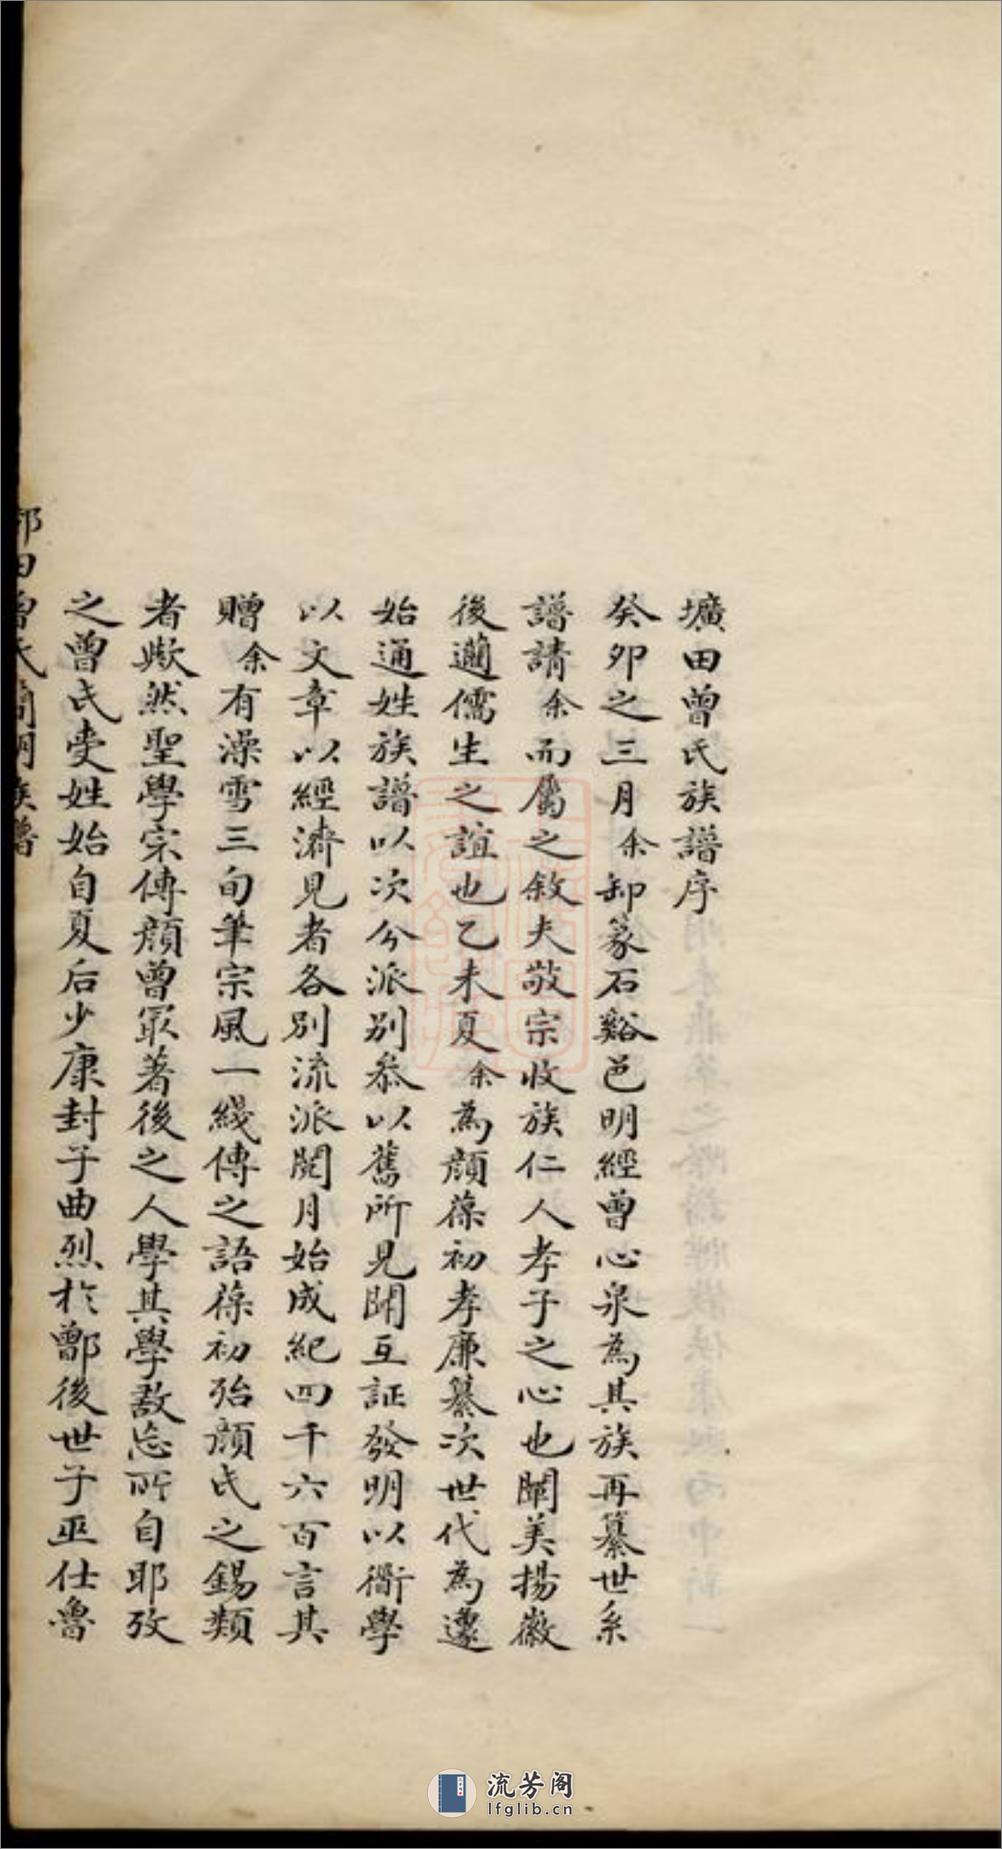 壙田曾氏族譜序
癸卯之三月余卸篆石谿邑明經曾心泉為其族再纂世系
譜請余而屬之敘夫敬宗收族仁人孝子之心也闡美揚徽
後邇儒生之誼也乙未夏余為顏葆初孝廉纂次世代為邊
始通姓族譜以次分派別叅以舊所見聞互証發明以衜學
以文章以經濟見者各別流派閱月始成紀四千六百言其
贈余有澡雪三旬筆宗風一綫傳之語葆初殆顏氏之錫類
者歟然聖學宗傳顏曾冣著後之人學其學敢忘所自耶攷
之曾氏受姓始自夏后少康封子曲烈於鄫後世子巫仕魯
田曾氏簡明族譜
流芳阁
lfglib.cn